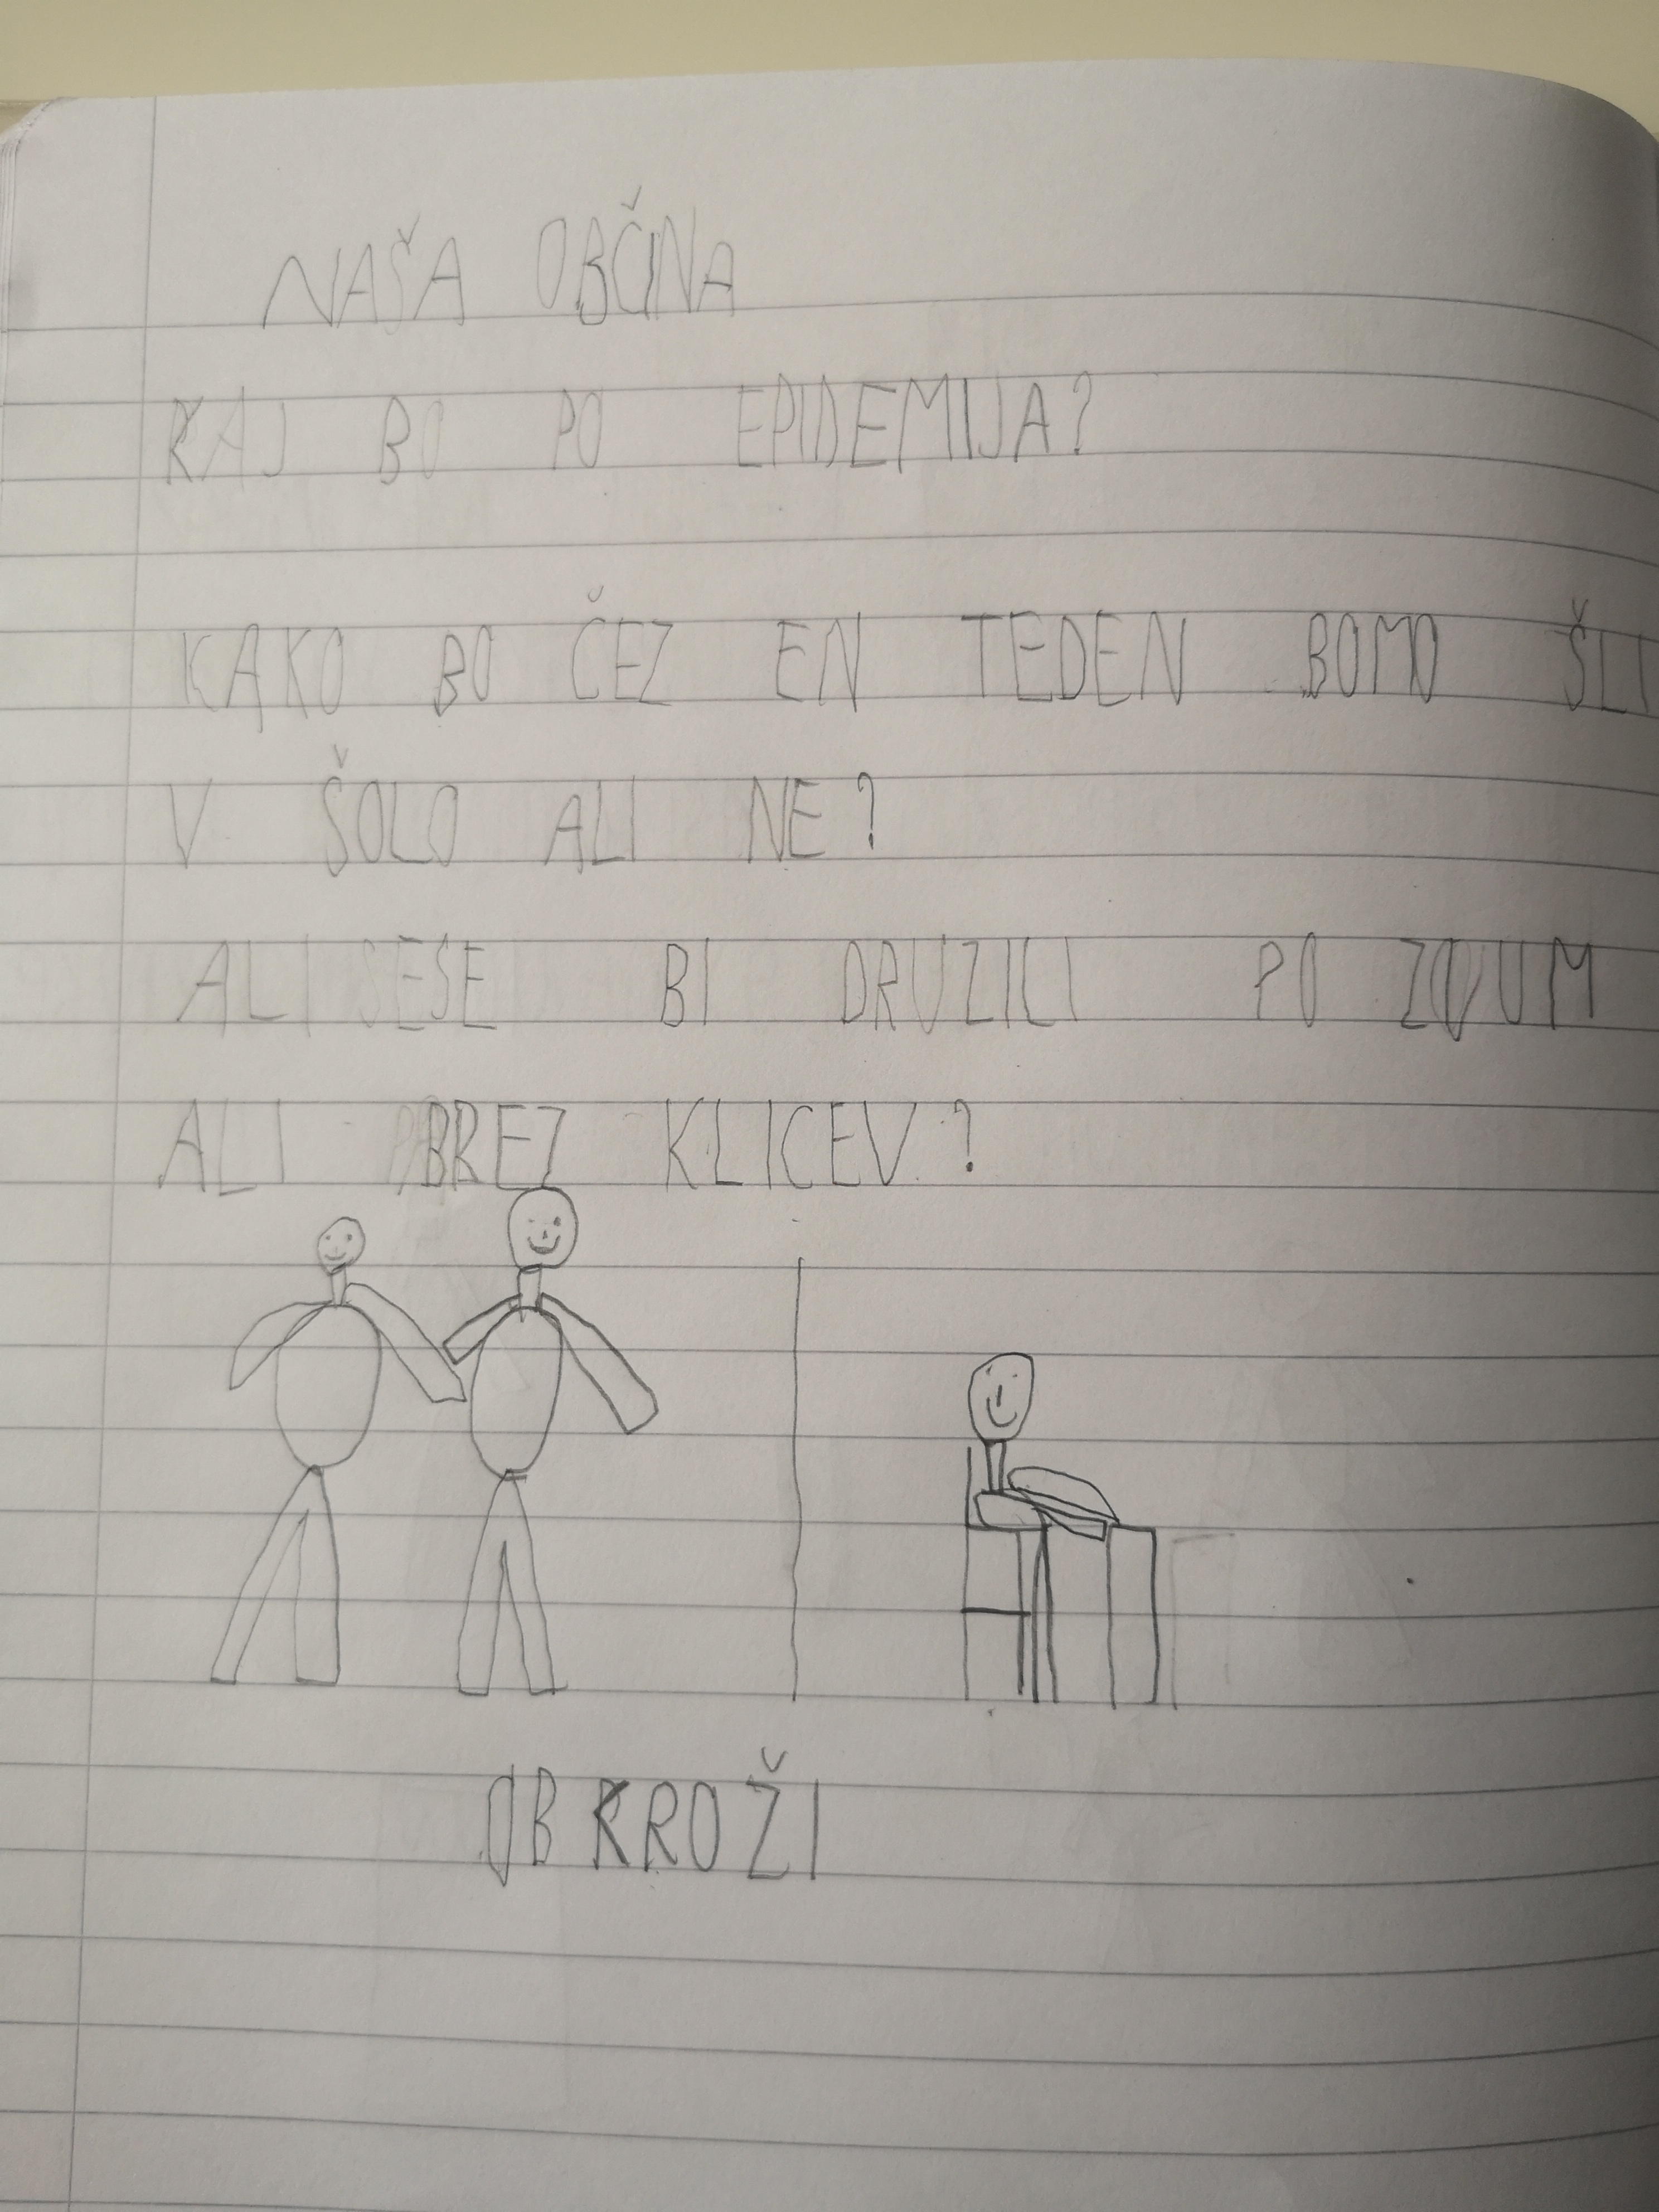 NAŠA OBČINA
KAJ BO PO EPIDEMIJA?
KAKO BO ČEZ EN TEDEN BOMO ŠLI
V ŠOLO ALI NE?
ALI SESE BI DRUZILI PO ZOUM
ALI BREZ KLICEV?
OBKROŽI